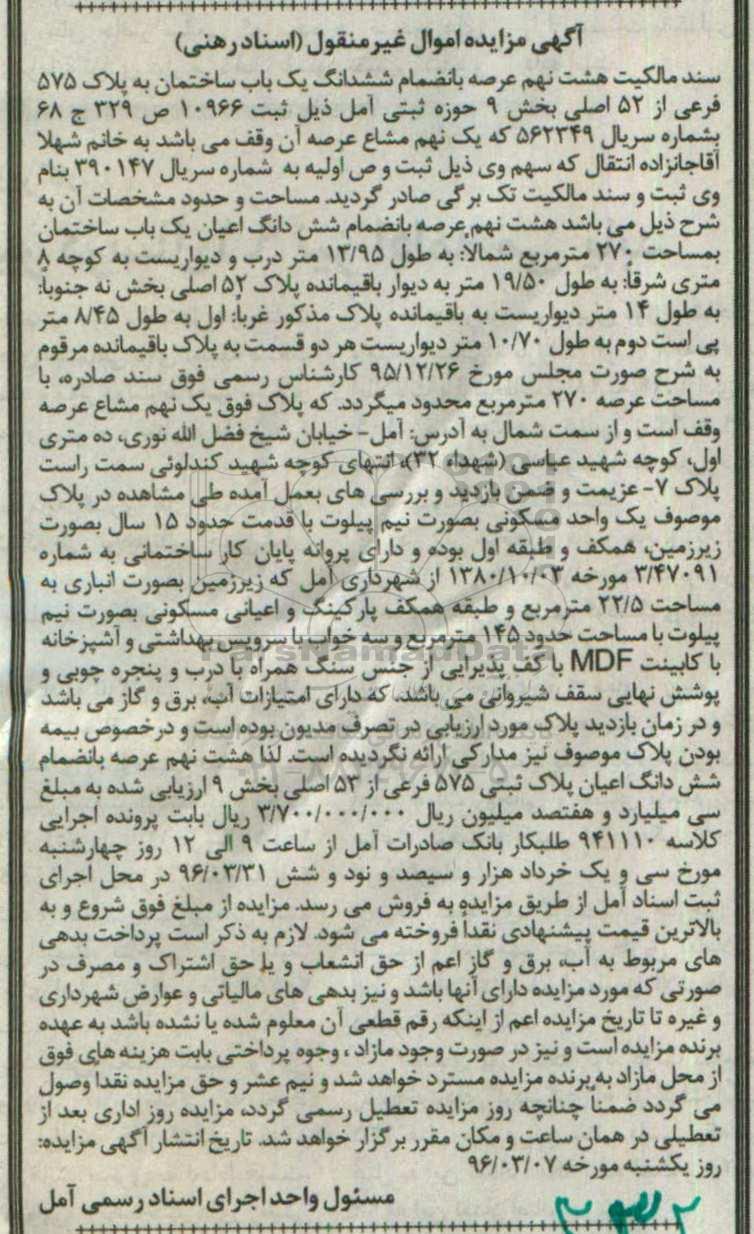 آگهی مزایده اموال غیرمنقول (اسناد رهنی)
سند مالکیت هشت نهم عرصه بانضمام ششدانگ یک باب ساختمان به پلاک ۵۷۵
فرعی از ۵۲ اصلی بخش ۹ حوزه ثبتی آمل ذیل ثبت ۱۰۹۶۶ ص ۳۲۹ ج ۶۸
بشماره سریال ۵۶۲۳۴۹ که یک نهم مشاع عرصه آن وقف می باشد به خانم شهلا
آقاجانزاده انتقال که سهم وی ذیل ثبت و ص اولیه به شماره سریال ۳۹۰۱۴۷ بنام
وی ثبت و سند مالکیت تک برگی صادر گردید. مساحت و حدود مشخصات آن به
شرح ذیل می باشد هشت نهم عرصه بانضمام شش دانگ اعیان یک باب ساختمان
بمساحت ۲۷۰ مترمربع شمالا: به طول ۱۳/۹۵ متر درب و دیواریست به کوچه ۸
متری شرقا: به طول ۱۹/۵۰ متر به دیوار باقیمانده پلاک ۵۲ اصلی بخش نه جنوبا:
به طول ۱۴ متر دیواریست به باقیمانده پلاک مذکور غربا: اول به طول ۸/۴۵ متر
پی است دوم به طول ۱۰/۷۰ متر دیواریست هر دو قسمت به پلاک باقیمانده مرقوم
به شرح صورت مجلس مورخ ۹۵/۱۲/۲۶ کارشناس رسمی فوق سند صادره، با
مساحت عرصه ۲۷۰ مترمربع محدود میگردد. که پلاک فوق یک نهم مشاع عرصه
وقف است و از سمت شمال به آدرس: آمل- خیابان شیخ فضل الله نوری، ده متری
اول، کوچه شهید عباسی (شهداء ۳۲)، انتهای کوچه شهید کندلوئی سمت راست
پلاک ۷- عزیمت و ضمن بازدید و بررسی های بعمل آمده طی مشاهده در پلاک
موصوف یک واحد مسکونی بصورت نیم پیلوت با قدمت حدود ۱۵ سال بصورت
زیرزمین، همکف و طبقه اول بوده و دارای پروانه پایان کار ساختمانی به شماره
۳/۴۷۰۹۱ مورخه ۱۳۸۰/۱۰/۰۳ از شهرداری آمل که زیرزمین بصورت انباری به
مساحت ۲۲/۵ مترمربع و طبقه همکف پارکینگ و اعیانی مسکونی بصورت نیم
پیلوت با مساحت حدود ۱۴۵ مترمربع و سه خواب با سرویس بهداشتی و آشپزخانه
با کابینت MDF با کف پذیرایی از جنس سنگ همراه با درب و پنجره چوبی و
پوشش نهایی سقف شیروانی می باشد، که دارای امتیازات آب، برق و گاز می باشد
و در زمان بازدید پلاک مورد ارزیابی در تصرف مدیون بوده است و درخصوص بیمه
بودن پلاک موصوف نیز مدارکی ارائه نگردیده است. لذا هشت نهم عرصه بانضمام
شش دانگ اعیان پلاک ثبتی ۵۷۵ فرعی از ۵۳ اصلی بخش ۹ ارزیابی شده به مبلغ
سی میلیارد و هفتصد میلیون ریال ۳/۷۰۰/۰۰۰/۰۰۰ ریال بابت پرونده اجرایی
کلاسه ۹۴۱۱۱۰ طلبکار بانک صادرات آمل از ساعت ۹ الی ۱۲ روز چهارشنبه
مورخ سی و یک خرداد هزار و سیصد و نود و شش ۹۶/۰۳/۳۱ در محل اجرای
ثبت اسناد آمل از طریق مزایده به فروش می رسد. مزایده از مبلغ فوق شروع و به
بالاترین قیمت پیشنهادی نقداً فروخته می شود. لازم به ذکر است پرداخت بدهی
های مربوط به آب، برق و گاز اعم از حق انشعاب و یا حق اشتراک و مصرف در
صورتی که مورد مزایده دارای آنها باشد و نیز بدهی های مالیاتی و عوارض شهرداری
و غیره تا تاریخ مزایده اعم از اینکه رقم قطعی آن معلوم شده یا نشده باشد به عهده
برنده مزایده است و نیز در صورت وجود مازاد ، وجوه پرداختی بابت هزینه های فوق
از محل مازاد به برنده مزایده مسترد خواهد شد و نیم عشر و حق مزایده نقدا وصول
می گردد ضمناً چنانچه روز مزایده تعطیل رسمی گردد، مزایده روز اداری بعد از
تعطیلی در همان ساعت و مکان مقرر برگزار خواهد شد. تاریخ انتشار آگهی مزایده:
روز یکشنبه مورخه ۹۶/۰۳/۰۷
مسئول واحد اجرای اسناد رسمی آمل
ParsNamadData